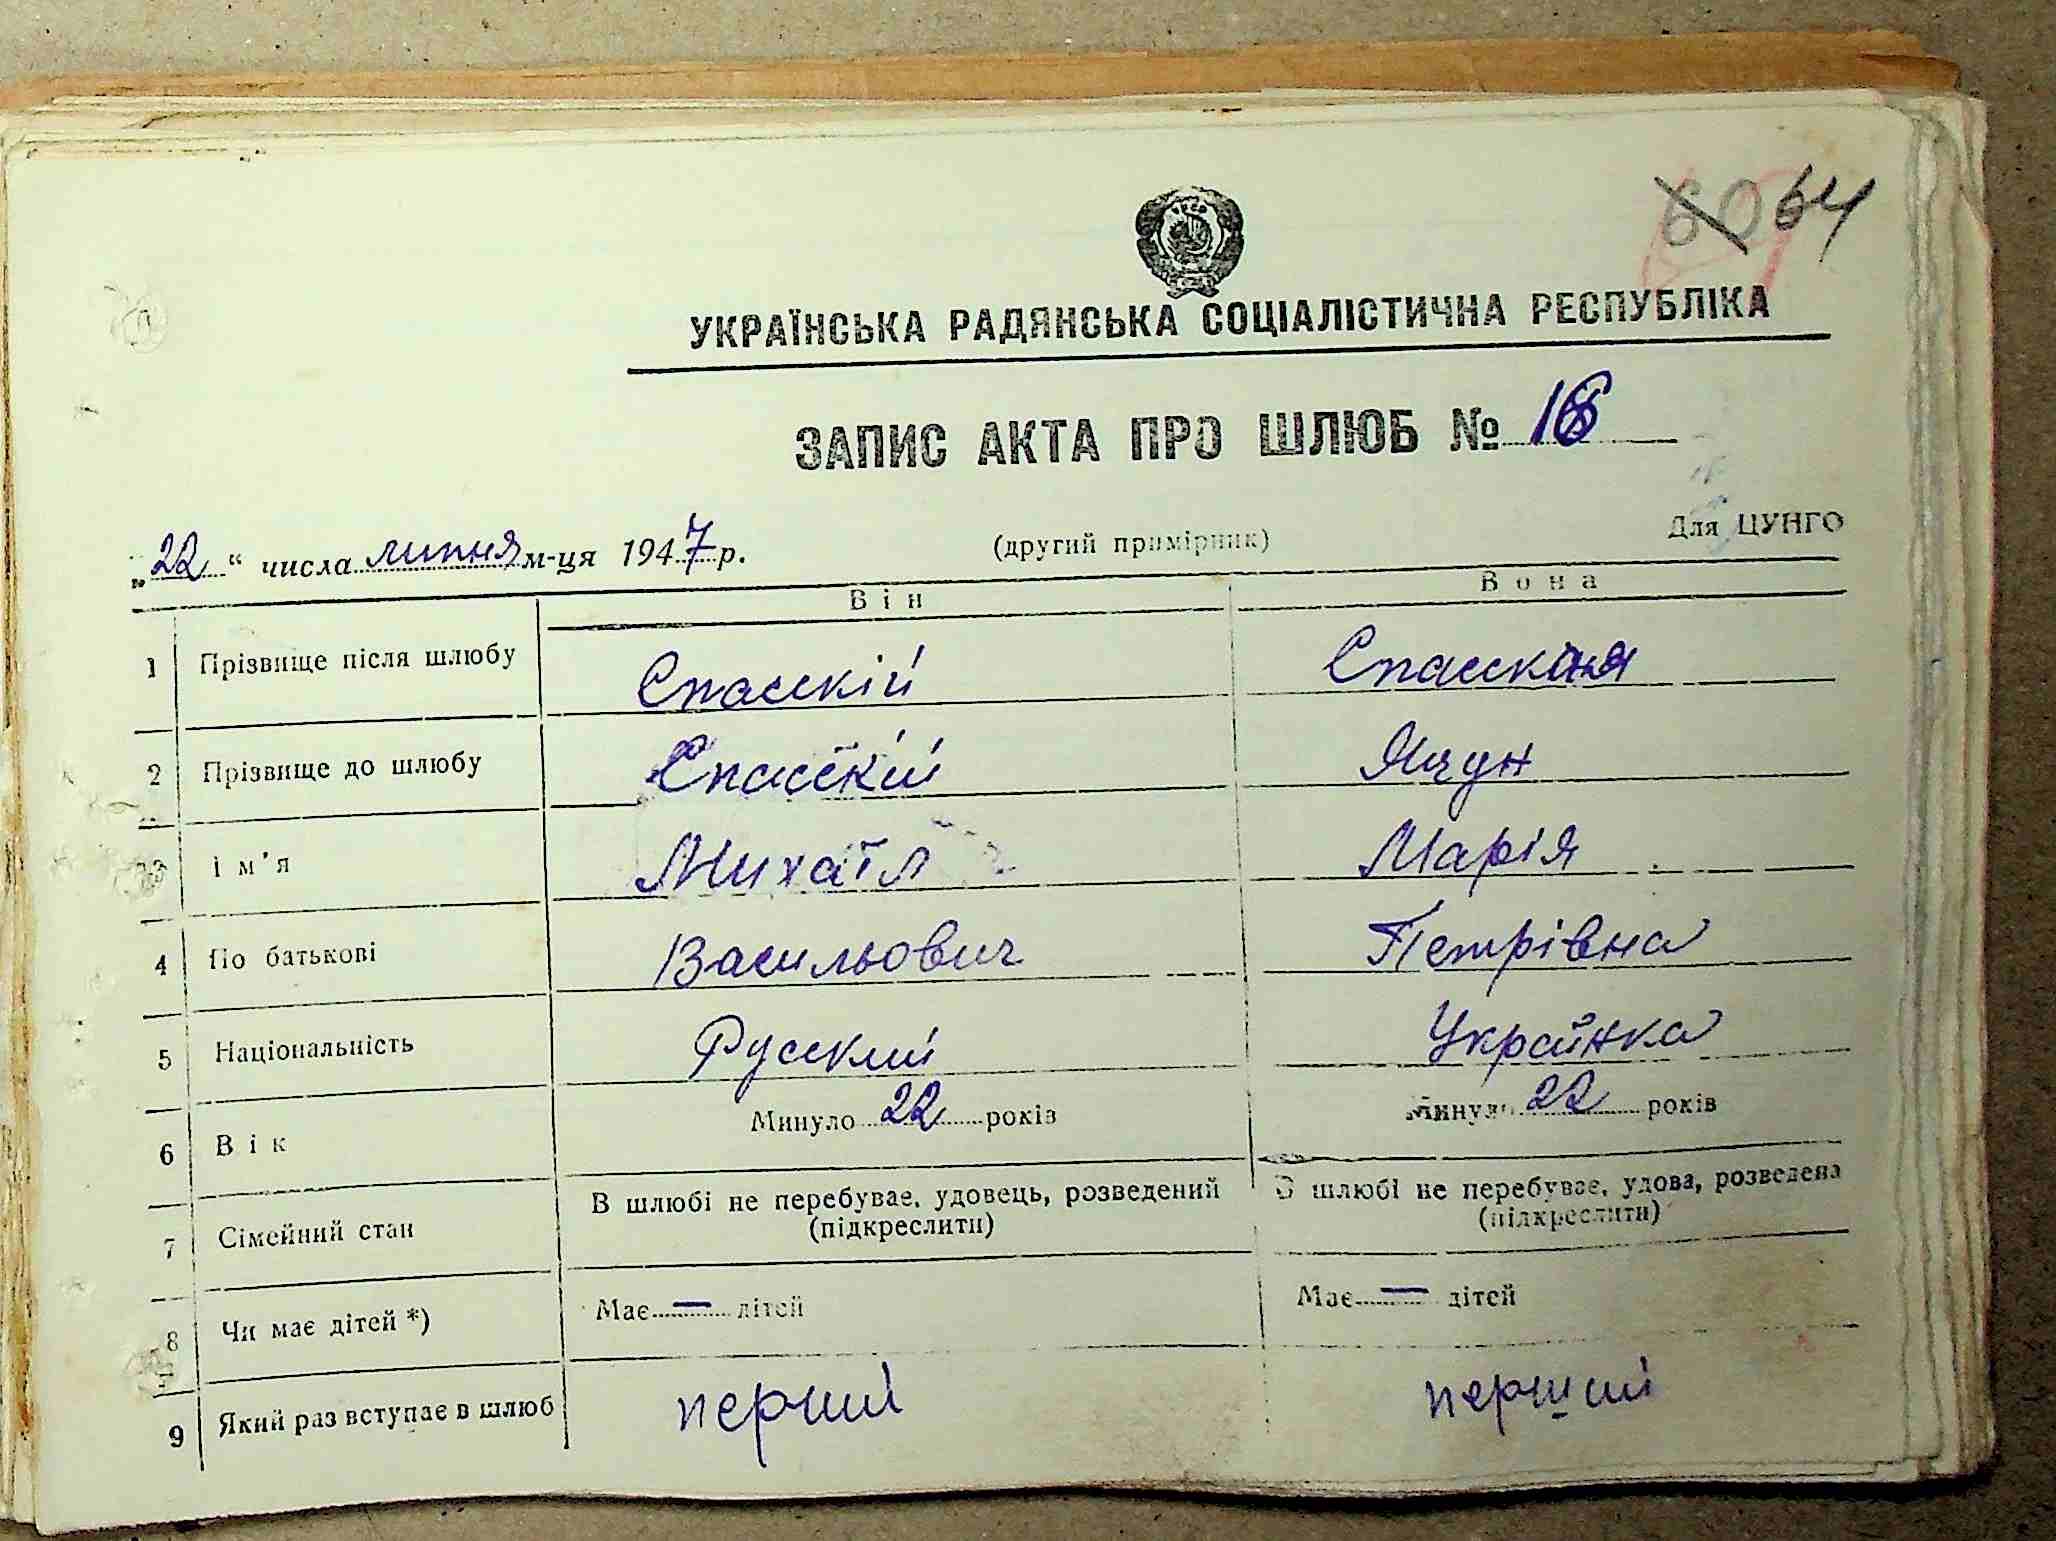 60 64
УКРАЇНСЬКА РАДЯНСЬКА СОЦІАЛІСТИЧНА РЕСПУБЛІКА
ЗАПИС АКТА ПРО ШЛЮБ № 16
„22“ числа липня м-ця 1947 р. (другий примірник) Для ЦУНГО
Він Вона
1 Прізвище після шлюбу Спасскій Спасская
2 Прізвище до шлюбу Спасскій Ячун
3 Ім'я Михаїл Марія
4 По батькові Васильович Петрівна
5 Національність Русский Українка
6 Вік Минуло 22 років Минуло 22 років
7 Сімейний стан В шлюбі не перебуває, удовець, розведений (підкреслити) В шлюбі не перебуває, удова, розведена (підкреслити)
8 Чи має дітей *) Має — дітей Має — дітей
9 Який раз вступає в шлюб перший перший